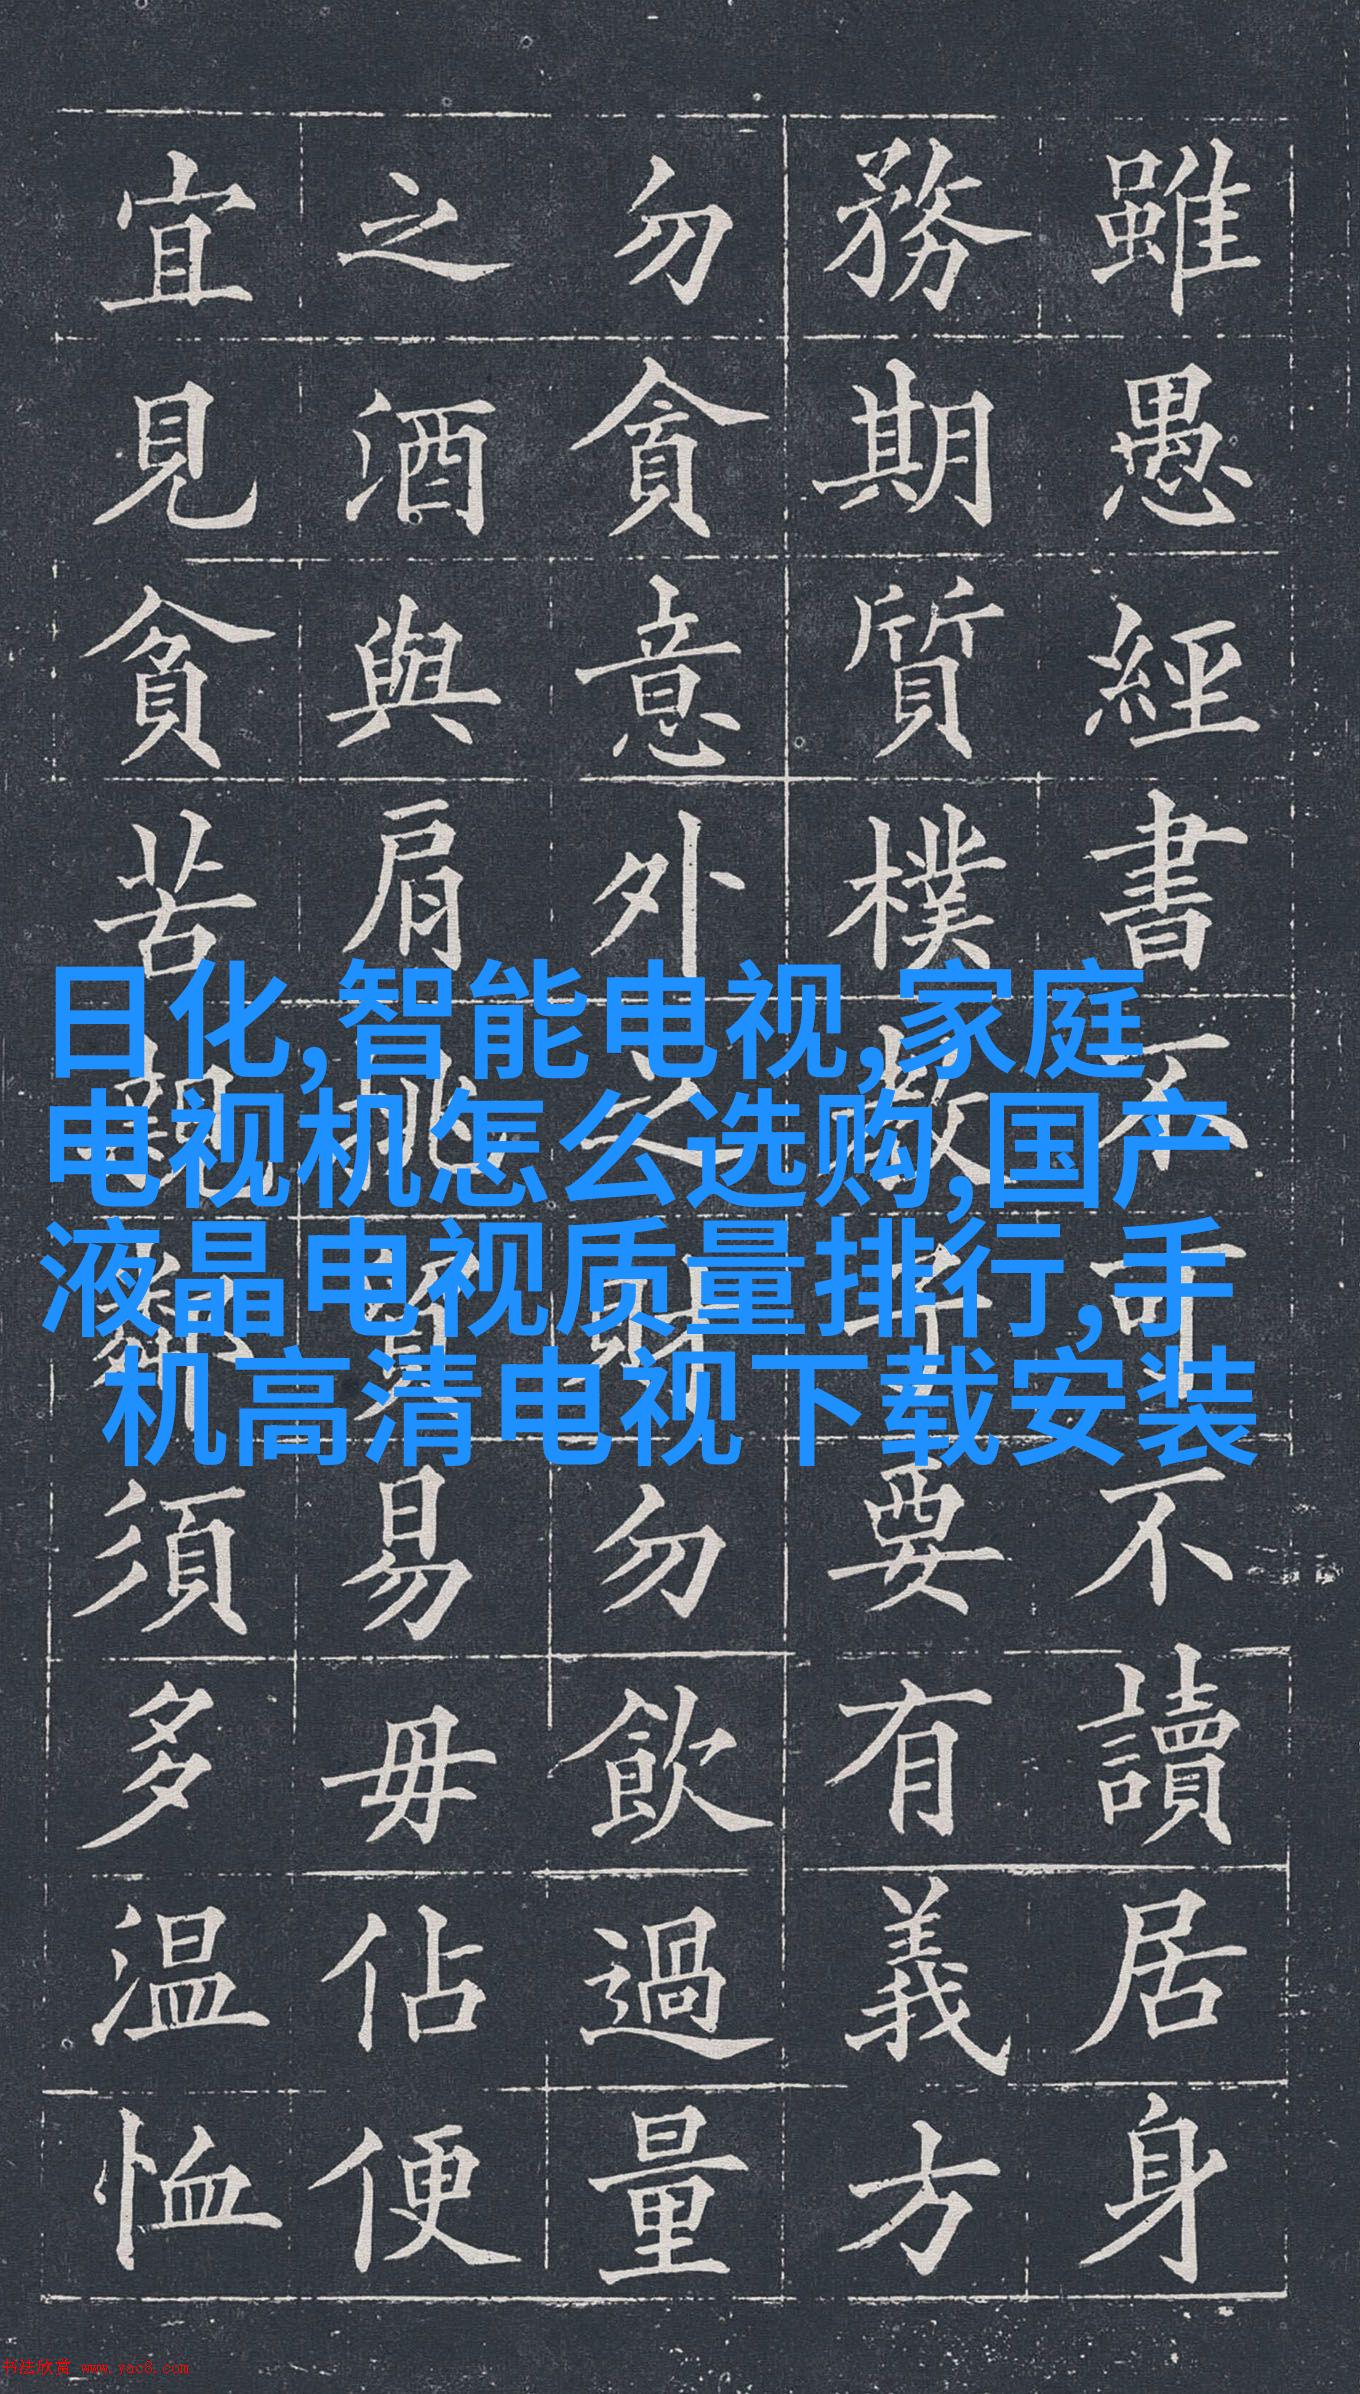 雖愚經書不可不讀居身
務期質樸教子要有義方
勿貪意外之財勿飲過量
之酒與肩挑貿易毋佔便
宜見貧苦親鄰須多温恤
日化,智能电视,家庭
电视机怎么选购,国产
液晶电视质量排行,手
机高清电视下载安装
书法欣赏 www.yac8.com